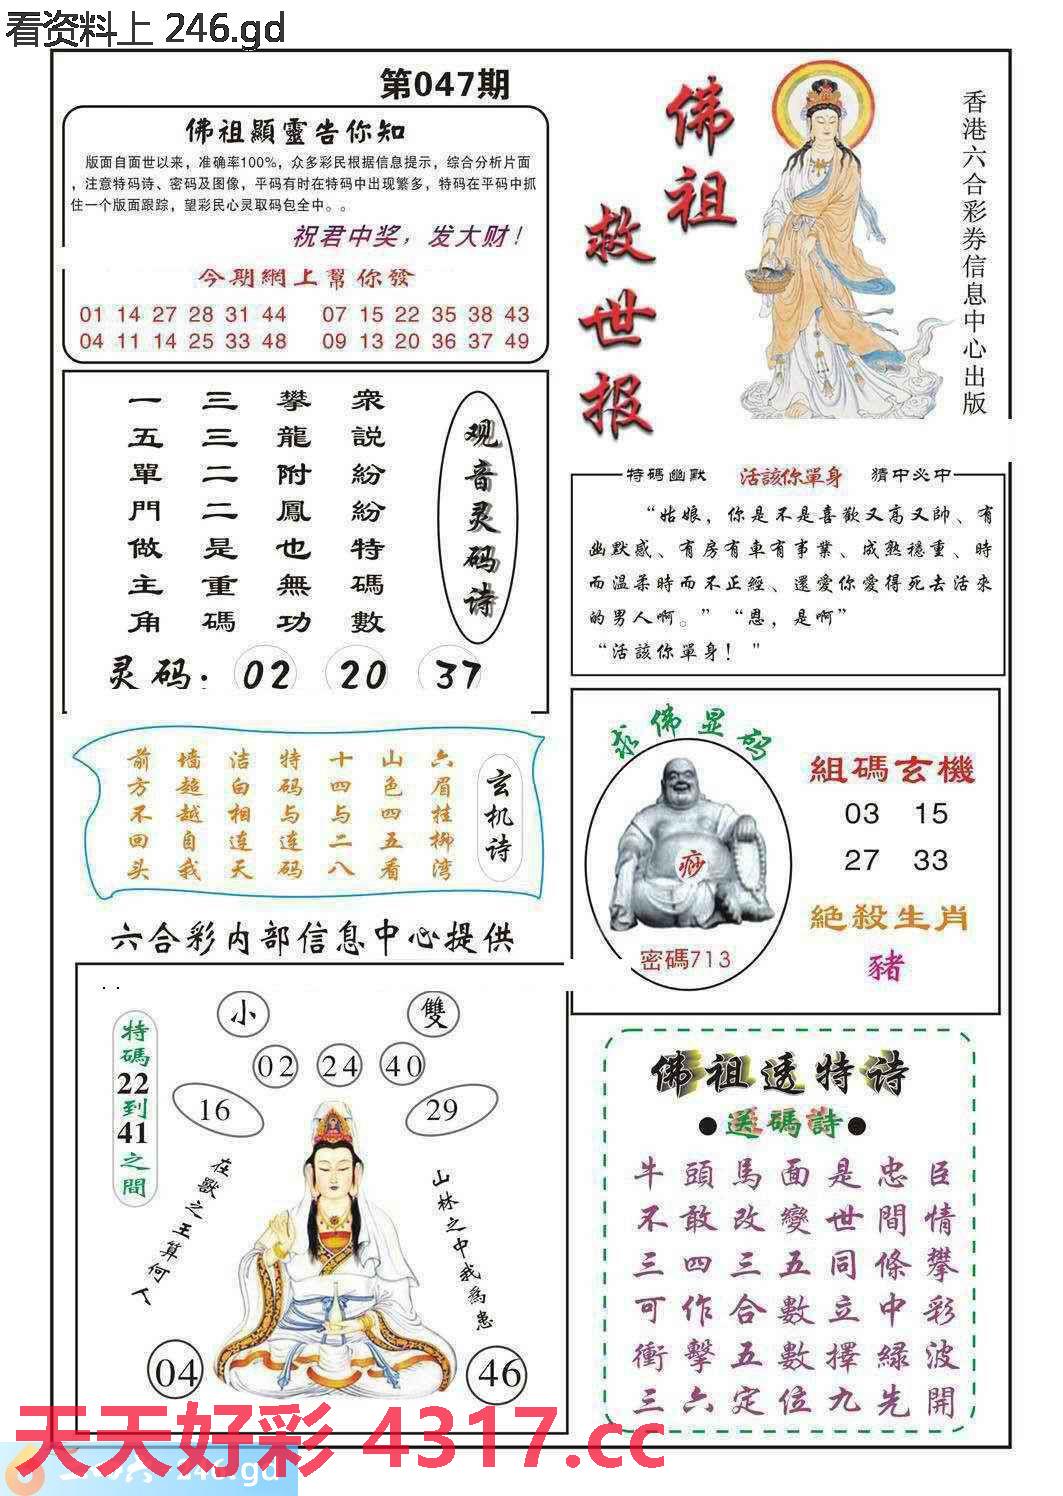 看资料上 246.gd
第047期
佛祖顯靈告你知
版面自面世以来，准确率100%，众多彩民根据信息提示，综合分析片面
，注意特码诗、密码及图像，平码有时在特码中出现繁多，特码在平码中抓
住一个版面跟踪，望彩民心灵取码包全中。。
祝君中奖，发大财！
今期網上幫你發
01 14 27 28 31 44 07 15 22 35 38 43
04 11 14 25 33 48 09 13 20 36 37 49
佛祖
救世报
香港六合彩券信息中心出版
观音灵码诗
衆説紛紛特碼數
攀龍附鳳也無功
三三二二是重碼
一五單門做主角
灵码：02 20 37
特碼幽默 活該你單身 猜中必中
“姑娘，你是不是喜歡又高又帥、有
幽默感、有房有車有事業、成熟穩重、時
而温柔時而不正經、還愛你愛得死去活來
的男人啊。” “恩，是啊”
“活該你單身！"
玄机诗
六眉挂柳湾
山色四五看
十四与二八
特码与连码
洁白相连天
墙超越自我
前方不回头
六合彩内部信息中心提供
求佛显码
痧
密碼713
組碼玄機
03 15
27 33
絶殺生肖
豬
小 雙
02 24 40
16 29
特碼22到41之間
在獸之王算何人
山林之中我為患
04 46
佛祖透特诗
●送碼詩●
牛頭馬面是忠臣
不敢改變世間情
三四三五同條攀
可作合數立中彩
衝擊五數擇緑波
三六定位九先開
天天好彩 4317.cc
246.gd